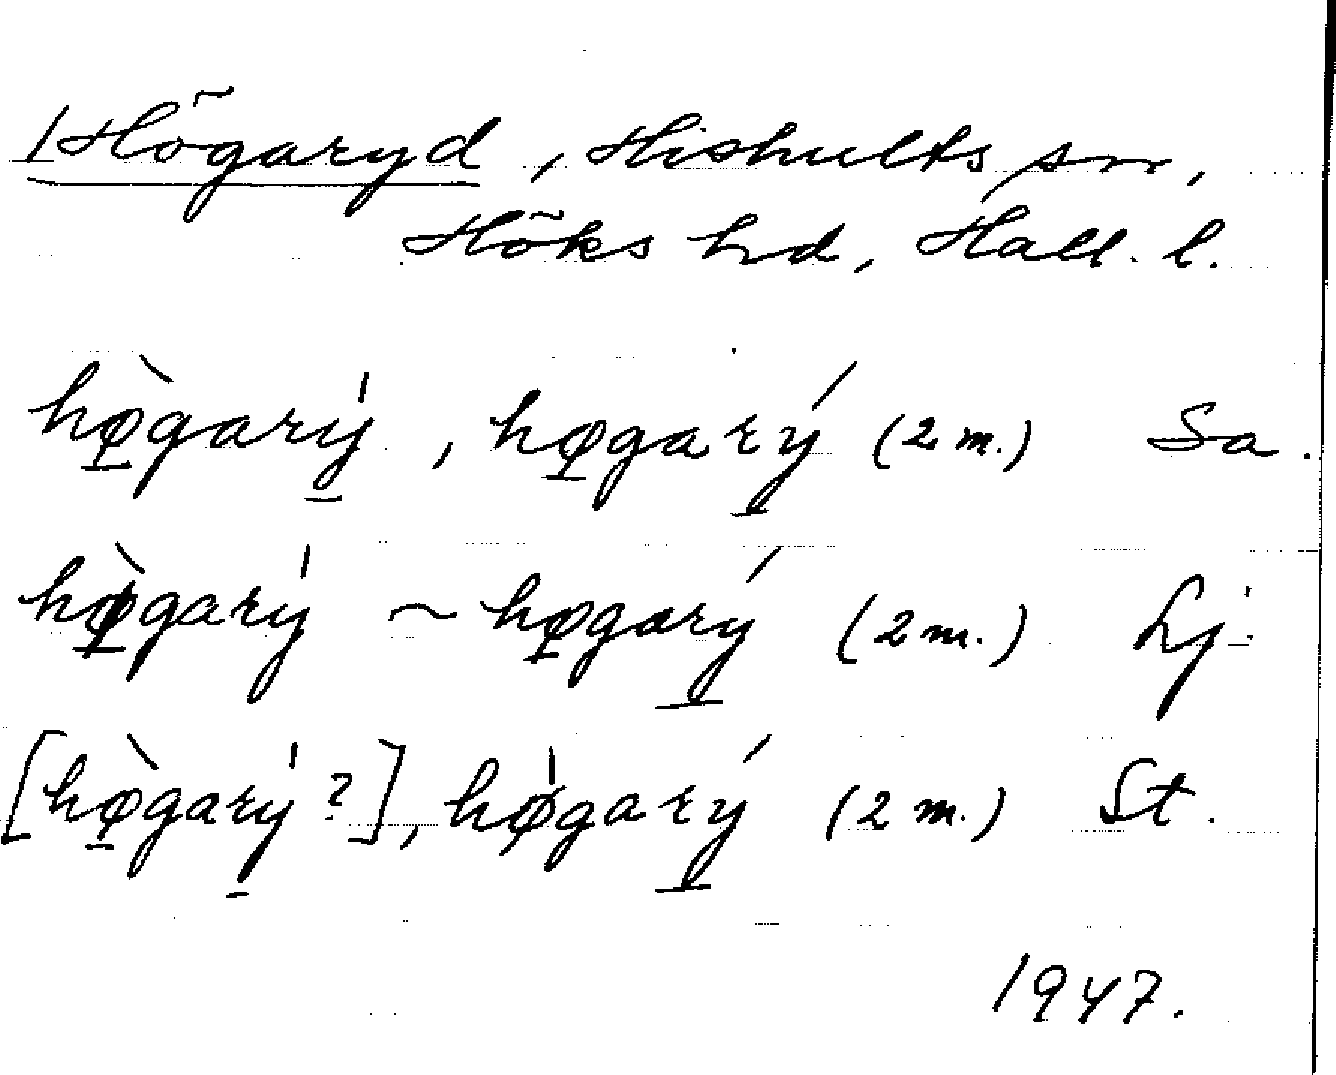 1 Högaryd, Hishults sn,
Höks hd, Hall. l.
hø̀garý, høgarý (2 m.) Sa.
hø̀garý ~ høgarý (2 m.) Lj.
[hø̀garý ?], høgarý (2 m.) St.
1947.